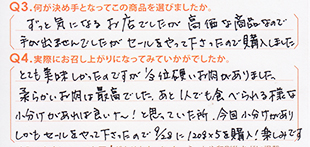 Q3.何が決め手となってこの商品を選びましたか。
ずっと気になるお店でしたが高価な商品なので
手が出ませんでしたがセールをやって下さったので購入しました
Q4.実際にお召し上がりになってみていかがでしたか。
とても美味しかったのですが1/3位硬いお肉がありました。
柔らかいお肉は最高でした。あと1人でも食べられる様な
小分けがあれば良いな〜!と思っていた所、今回小分けがあり
しかもセールをやって下さったので8/28に120g×5を購入!楽しみです